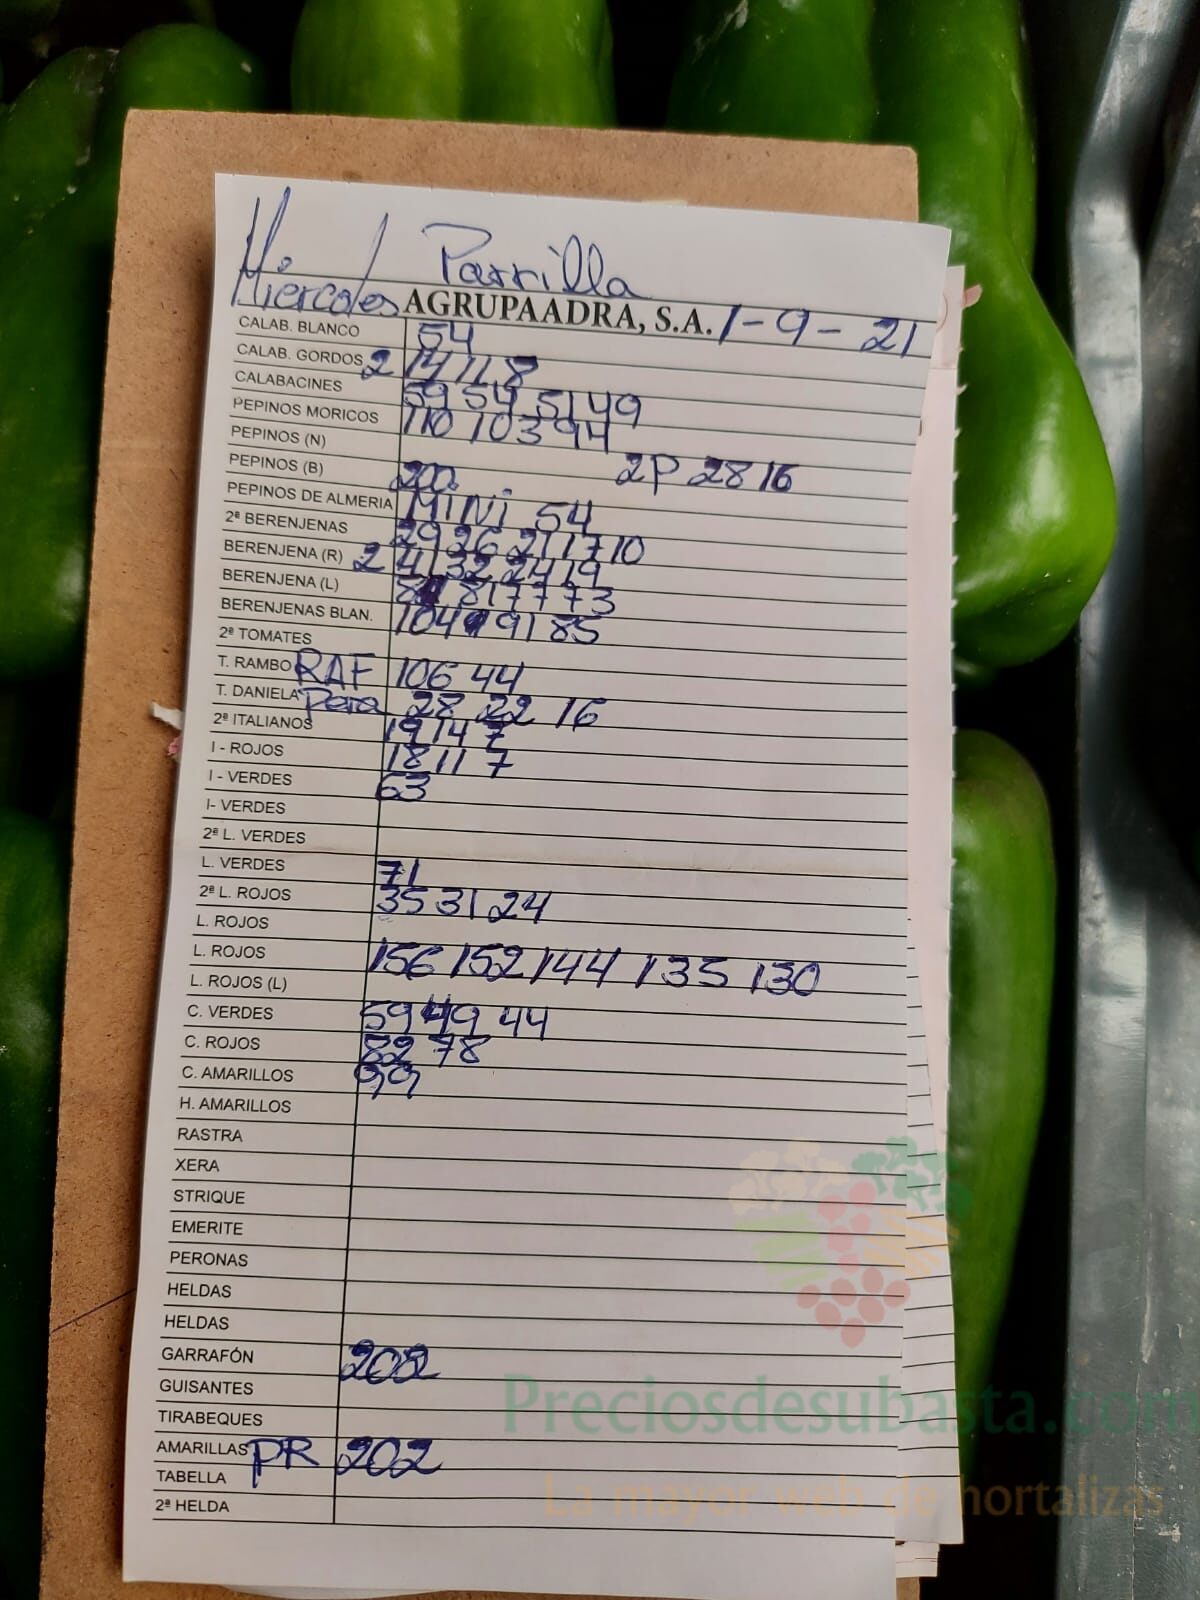 Parrilla
Miercoles AGRUPAADRA, S.A. 1-9-21
CALAB. BLANCO 54
CALAB. GORDOS 2 14 11 8
CALABACINES 59 54 51 49
PEPINOS MORICOS 110 103 94
PEPINOS (N) 2P 28 16
PEPINOS (B) 200
PEPINOS DE ALMERIA MINI 54
2ª BERENJENAS 29 26 21 17 10
BERENJENA (R) 2 41 32 24 19
BERENJENA (L) 81 77 73
BERENJENAS BLAN. 104 91 85
2ª TOMATES
T. RAMBO RAF 106 44
T. DANIELA Pera 28 22 16
2ª ITALIANOS 19 14 7
I - ROJOS 18 11 7
I - VERDES 63
I- VERDES
2ª L. VERDES
L. VERDES 71
2ª L. ROJOS 35 31 24
L. ROJOS
L. ROJOS 156 152 144 135 130
L. ROJOS (L)
C. VERDES 59 49 44
C. ROJOS 82 78
C. AMARILLOS 99
H. AMARILLOS
RASTRA
XERA
STRIQUE
EMERITE
PERONAS
HELDAS
HELDAS
GARRAFÓN 208
GUISANTES
TIRABEQUES
AMARILLAS PR 202
TABELLA
2ª HELDA
Preciosdesubasta.com
La mayor web de hortalizas